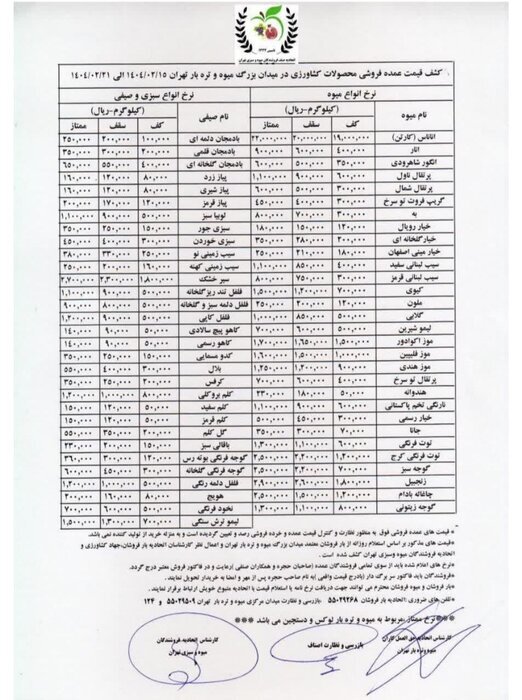 کشف قیمت عمده فروشی محصولات کشاورزی در میدان بزرگ میوه و تره بار تهران ۱۴۰۴/۰۲/۱۵ الی ۱۴۰۴/۰۲/۲۱
نرخ انواع میوه (کیلوگرم-ریال) نرخ انواع سبزی و صیفی (کیلوگرم-ریال)
نام میوه کف سقف ممتاز نام صیفی کف سقف ممتاز
آناناس (کارتن) ۱۹,۰۰۰,۰۰۰ ۲۰,۰۰۰,۰۰۰ ۲۲,۰۰۰,۰۰۰ بادمجان دلمه ای ۱۰۰,۰۰۰ ۲۰۰,۰۰۰ ۲۵۰,۰۰۰
انار ۴۰۰,۰۰۰ ۶۰۰,۰۰۰ ۹۰۰,۰۰۰ بادمجان قلمی ۲۰۰,۰۰۰ ۳۰۰,۰۰۰ ۳۵۰,۰۰۰
انگور شاهرودی ۳۵۰,۰۰۰ ۵۰۰,۰۰۰ ۶۰۰,۰۰۰ بادمجان گلخانه ای ۴۰۰,۰۰۰ ۵۵۰,۰۰۰ ۶۵۰,۰۰۰
پرتقال ناول ۶۰۰,۰۰۰ ۹۰۰,۰۰۰ ۱,۱۰۰,۰۰۰ پیاز زرد ۸۰,۰۰۰ ۱۲۰,۰۰۰ ۱۶۰,۰۰۰
پرتقال شمال ۳۰۰,۰۰۰ ۵۰۰,۰۰۰ ۶۰۰,۰۰۰ پیاز شیری ۸۰,۰۰۰ ۱۲۰,۰۰۰ ۱۶۰,۰۰۰
گریپ فروت تو سرخ ۳۰۰,۰۰۰ ۴۰۰,۰۰۰ ۴۵۰,۰۰۰ پیاز قرمز ۱۲۰,۰۰۰ ۱۷۰,۰۰۰ ۲۰۰,۰۰۰
به ۳۰۰,۰۰۰ ۷۰۰,۰۰۰ ۸۰۰,۰۰۰ لوبیا سبز ۵۰۰,۰۰۰ ۹۰۰,۰۰۰ ۱,۱۰۰,۰۰۰
خیار رویال ۱۲۰,۰۰۰ ۱۵۰,۰۰۰ ۱۸۰,۰۰۰ سبزی جور ۱۵۰,۰۰۰ ۲۵۰,۰۰۰ ۳۵۰,۰۰۰
خیارگلخانه ای ۲۰۰,۰۰۰ ۲۸۰,۰۰۰ ۳۵۰,۰۰۰ سبزی خوردن ۳۰۰,۰۰۰ ۴۰۰,۰۰۰ ۴۵۰,۰۰۰
خیار مینی اصفهان ۱۸۰,۰۰۰ ۲۱۰,۰۰۰ ۲۵۰,۰۰۰ سیب زمینی نو ۲۵۰,۰۰۰ ۳۳۰,۰۰۰ ۳۸۰,۰۰۰
سیب لبنانی سفید ۴۰۰,۰۰۰ ۸۵۰,۰۰۰ ۱,۱۰۰,۰۰۰ سیب زمینی کهنه ۱۶۰,۰۰۰ ۲۰۰,۰۰۰ ۲۵۰,۰۰۰
سیب لبنانی قرمز ۳۰۰,۰۰۰ ۷۵۰,۰۰۰ ۸۰۰,۰۰۰ سیر خشک ۱,۸۰۰,۰۰۰ ۲,۳۰۰,۰۰۰ ۲,۷۰۰,۰۰۰
کیوی ۷۰۰,۰۰۰ ۱,۲۰۰,۰۰۰ ۱,۵۰۰,۰۰۰ فلفل تند ریزگلخانه ۵۰۰,۰۰۰ ۹۰۰,۰۰۰ ۱,۱۰۰,۰۰۰
ملون ۱۲۰,۰۰۰ ۲۰۰,۰۰۰ ۲۵۰,۰۰۰ فلفل دلمه سبز و گلخانه ۵۰۰,۰۰۰ ۸۰۰,۰۰۰ ۹۰۰,۰۰۰
گلابی ۵۰۰,۰۰۰ ۸۵۰,۰۰۰ ۱,۰۰۰,۰۰۰ فلفل کاپی ۵۰۰,۰۰۰ ۹۰۰,۰۰۰ ۱,۲۰۰,۰۰۰
لیمو شیرین ۵۰۰,۰۰۰ ۶۰۰,۰۰۰ ۷۰۰,۰۰۰ کاهو پیچ سالادی ۵۰,۰۰۰ ۹۰,۰۰۰ ۱۴۰,۰۰۰
موز اکوادور ۱,۵۰۰,۰۰۰ ۱,۶۵۰,۰۰۰ ۱,۷۰۰,۰۰۰ کاهو رسمی ۵۰,۰۰۰ ۹۰,۰۰۰ ۱۴۰,۰۰۰
موز فلیپین ۱,۱۰۰,۰۰۰ ۱,۵۰۰,۰۰۰ ۱,۶۰۰,۰۰۰ کدو مسمایی ۱۵۰,۰۰۰ ۲۵۰,۰۰۰ ۳۵۰,۰۰۰
موز هندی ۹۰۰,۰۰۰ ۱,۲۰۰,۰۰۰ ۱,۲۵۰,۰۰۰ بلال ۳۰۰,۰۰۰ ۴۰۰,۰۰۰ ۵۵۰,۰۰۰
پرتقال تو سرخ ۴۰۰,۰۰۰ ۶۰۰,۰۰۰ ۷۰۰,۰۰۰ کرفس ۲۰۰,۰۰۰ ۲۵۰,۰۰۰ ۳۵۰,۰۰۰
هندوانه ۵۰,۰۰۰ ۱۸۰,۰۰۰ ۲۳۰,۰۰۰ کلم بروکلی ۸۰۰,۰۰۰ ۱,۰۰۰,۰۰۰ ۱,۲۰۰,۰۰۰
نارنگی تخم پاکستانی ۶۰۰,۰۰۰ ۹۰۰,۰۰۰ ۱,۱۰۰,۰۰۰ کلم سفید ۵۰,۰۰۰ ۱۲۰,۰۰۰ ۱۵۰,۰۰۰
خیار رسمی ۳۰۰,۰۰۰ ۴۵۰,۰۰۰ ۵۰۰,۰۰۰ کلم قرمز ۵۰,۰۰۰ ۱۲۰,۰۰۰ ۱۵۰,۰۰۰
جانا ۷۰,۰۰۰ ۳۰۰,۰۰۰ ۳۵۰,۰۰۰ گل کلم ۲۰۰,۰۰۰ ۳۵۰,۰۰۰ ۵۵۰,۰۰۰
توت فرنگی ۶۰۰,۰۰۰ ۱,۱۰۰,۰۰۰ ۱,۳۰۰,۰۰۰ باقالی سبز ۱۵۰,۰۰۰ ۲۰۰,۰۰۰ ۲۳۰,۰۰۰
توت فرنگی کرج ۱,۲۰۰,۰۰۰ ۲,۲۰۰,۰۰۰ ۲,۵۰۰,۰۰۰ گوجه فرنگی بوته رس ۱۲۰,۰۰۰ ۳۰۰,۰۰۰ ۳۶۰,۰۰۰
گوجه سبز ۷۰۰,۰۰۰ ۲,۲۰۰,۰۰۰ ۲,۵۰۰,۰۰۰ گوجه فرنگی گلخانه ۳۰۰,۰۰۰ ۴۵۰,۰۰۰ ۶۰۰,۰۰۰
زنجبیل ۱,۸۰۰,۰۰۰ ۲,۶۰۰,۰۰۰ ۲,۹۰۰,۰۰۰ فلفل دلمه رنگی ۵۰۰,۰۰۰ ۱,۲۰۰,۰۰۰ ۱,۳۰۰,۰۰۰
چاغاله بادام ۱,۲۰۰,۰۰۰ ۱,۸۰۰,۰۰۰ ۲,۵۰۰,۰۰۰ هویج ۸۰,۰۰۰ ۱۶۰,۰۰۰ ۲۰۰,۰۰۰
گوجه زیتونی ۸۰۰,۰۰۰ ۱,۱۰۰,۰۰۰ ۱,۳۰۰,۰۰۰ نخود فرنگی ۵۰۰,۰۰۰ ۶۰۰,۰۰۰ ۷۰۰,۰۰۰
لیمو ترش سنگی ۷۰۰,۰۰۰ ۱,۳۰۰,۰۰۰ ۱,۵۰۰,۰۰۰
* قیمت های عمده فروشی فوق به منظور نظارت و کنترل قیمت عمده و خرده فروشی رصد و تهیین گردیده است و به منزله خرید از تولید کننده نمی باشد.
*قیمت های مذکور بر اساس استعلام روزانه از بار فروشان معتمد میدان بزرگ میوه و تره بار تهران و اعمال نظر کارشناسان اتحادیه بار فروشان،جهاد کشاورزی و
اتحادیه فروشندگان میوه وسبزی تهران کشف شده است .
*نرخ های اعلام شده باید از سوی تمامی فروشندگان عمده (صاحبان حجره و همکاران صنفی )رعایت و در فاکتور فروش معتبر درج گردد.
*فروشندگان باید فاکتور سر برگ دار (بادرج قیمت واقعی )به نام صاحب حجره پس از مهر و امضا به خریدار تحویل نمایند .
*بار فروشان و میوه فروشان محترم می توانند جهت دریافت نرخ نامه یا استعلام قیمت با اتحادیه متبوع خویش ارتباط برقرار نمایند .
*تلفن های ضروری :اتحادیه بار فروشان ۵۵۰۴۹۲۶۸ -بازرسی و نظارت میدان مرکزی میوه و تره بار تهران ۵۵۰۲۹۵۰۹ و ۱۲۴
*** نرخ ممتاز،مربوط به میوه و تره بار لوکس و دستچین می باشد ***
کارشناس اتحادیه حق العمل کاران میوه وتره بار تهران
بازرسی و نظارت اصناف
کارشناس اتحادیه،فروشندگان میوه و سبزی تهران